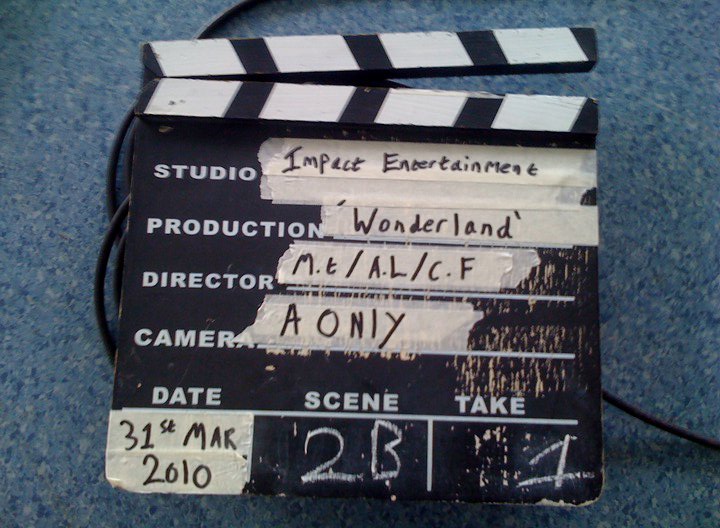 STUDIO Impact Entertainment
PRODUCTION 'Wonderland'
DIRECTOR M.t/A.L/C.F
CAMERA A ONLY
DATE SCENE TAKE
31st MAR 2B 1
2010